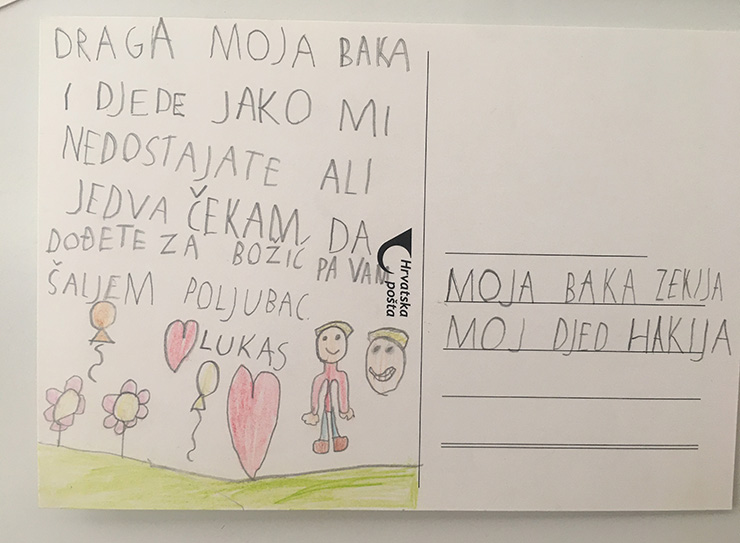 DRAGA MOJA BAKA
I DJEDE JAKO MI
NEDOSTAJATE ALI
JEDVA ČEKAM, DA
DOĐETE ZA BOŽIĆ PA VAM
ŠALJEM POLJUBAC.
LUKAS
Hrvatska
pošta
MOJA BAKA ZEKIJA
MOJ DJED HAKIJA